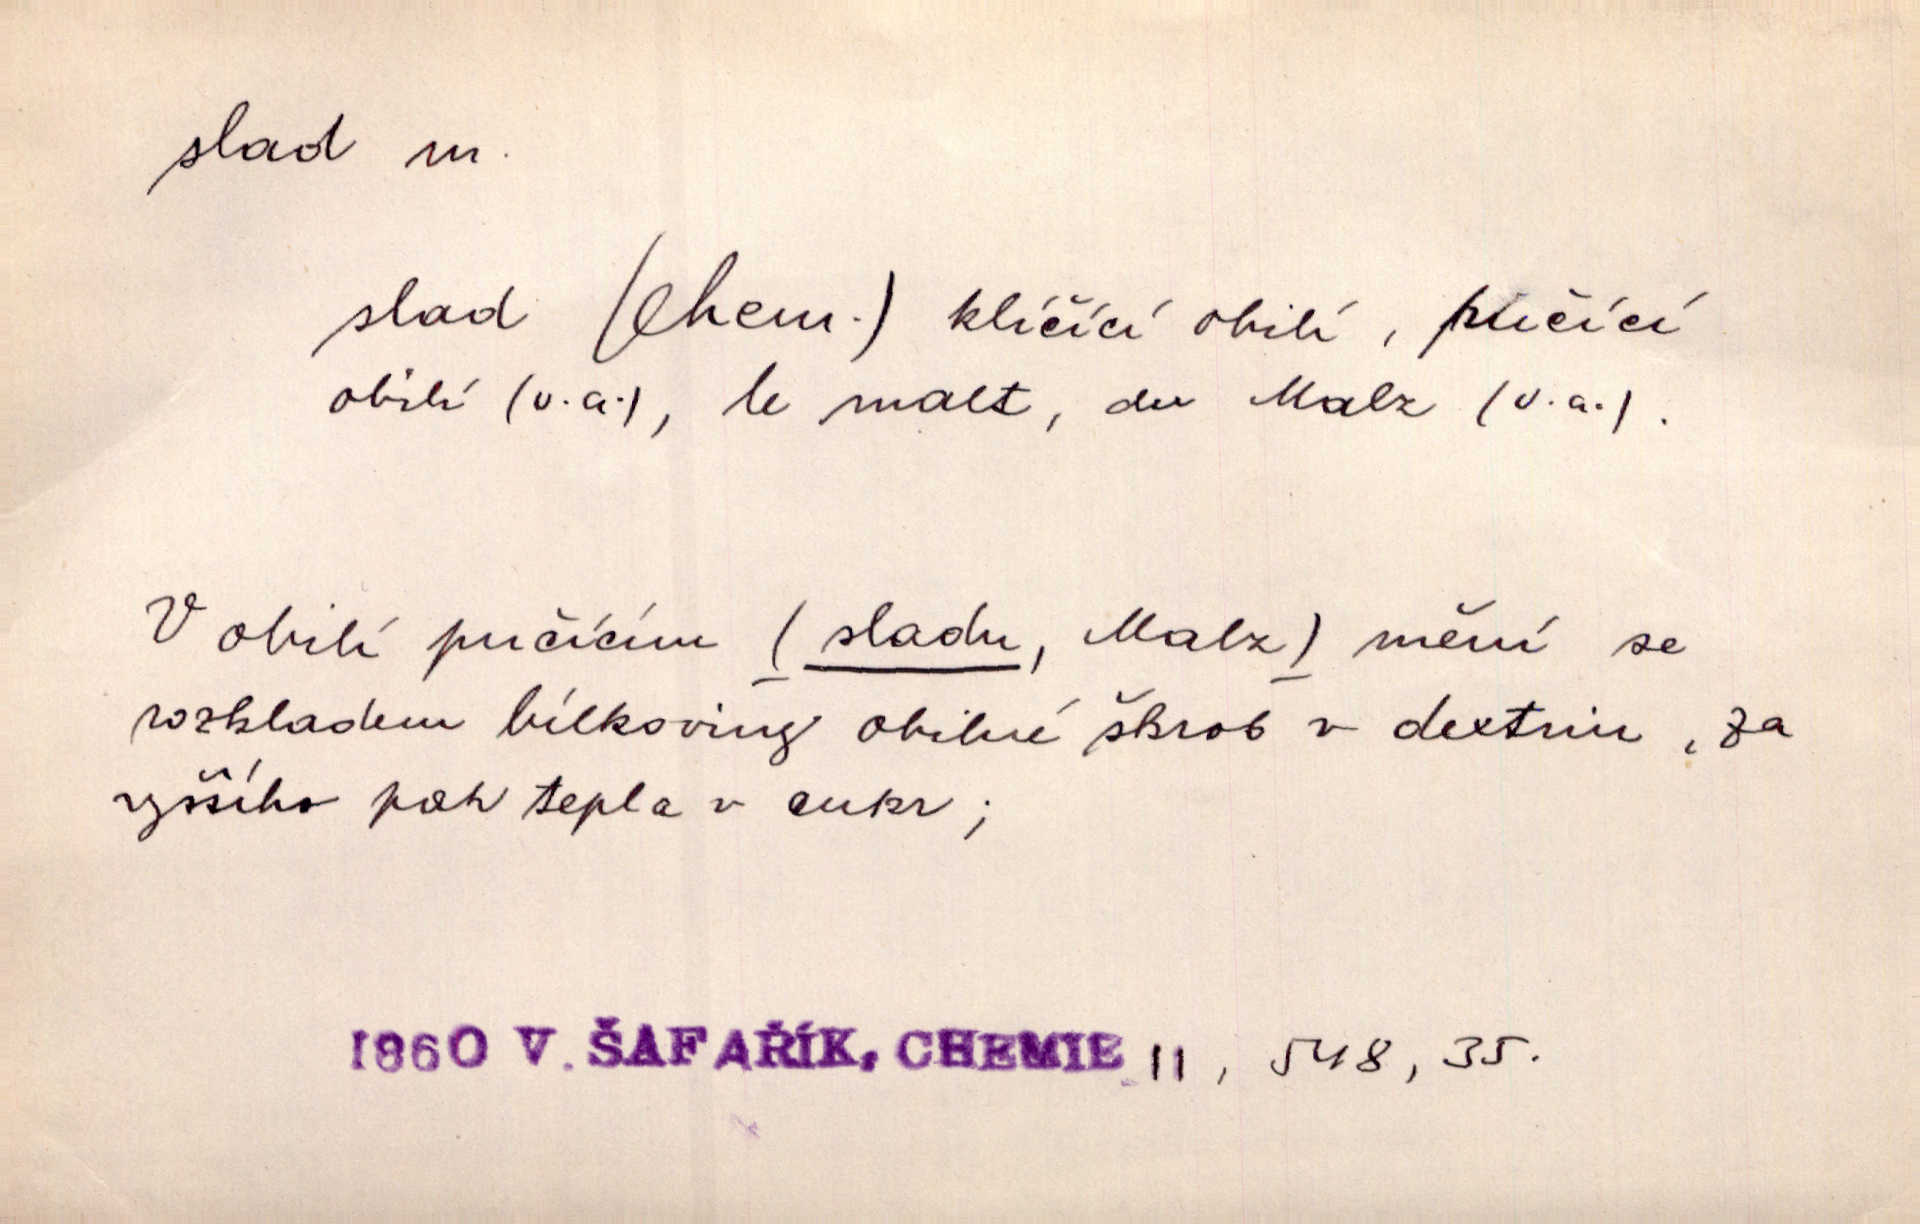 slad m.
slad (chem.) klíčící obilí, pučící
obilí (v.a.), le malt, der Malz (v.a.).
V obilí pučícím (sladu, Malz) mění se
rozkladem bílkoviny obilné škrob v dextrin, za
vyššího pak tepla v cukr;
1860 V. ŠAFAŘÍK, CHEMIE II, 548, 35.